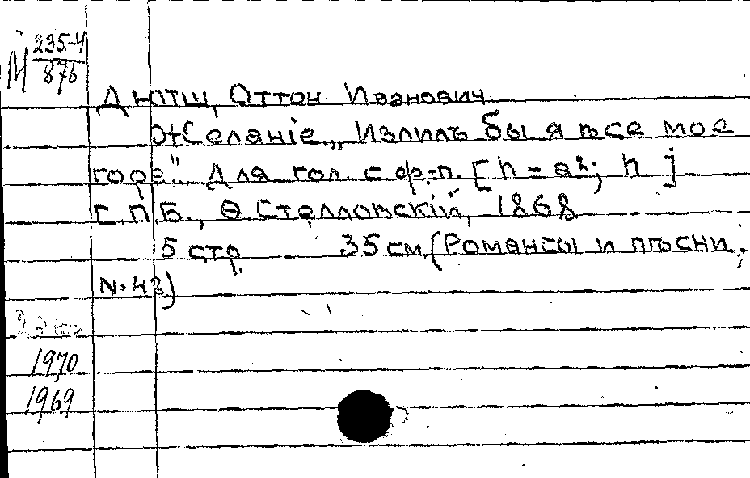 М 235-4
876
Дютш, Оттон Иванович
Желанiе „Излилъ бы я все мое
горе". Для гол. с ф.-п. [h - a²; h]
С.П.Б., Ѳ. Стелловскiй, 1868
5 стр. 35 см. (Романсы и пѣсни,
N. 42)
2 экз
1970
1969